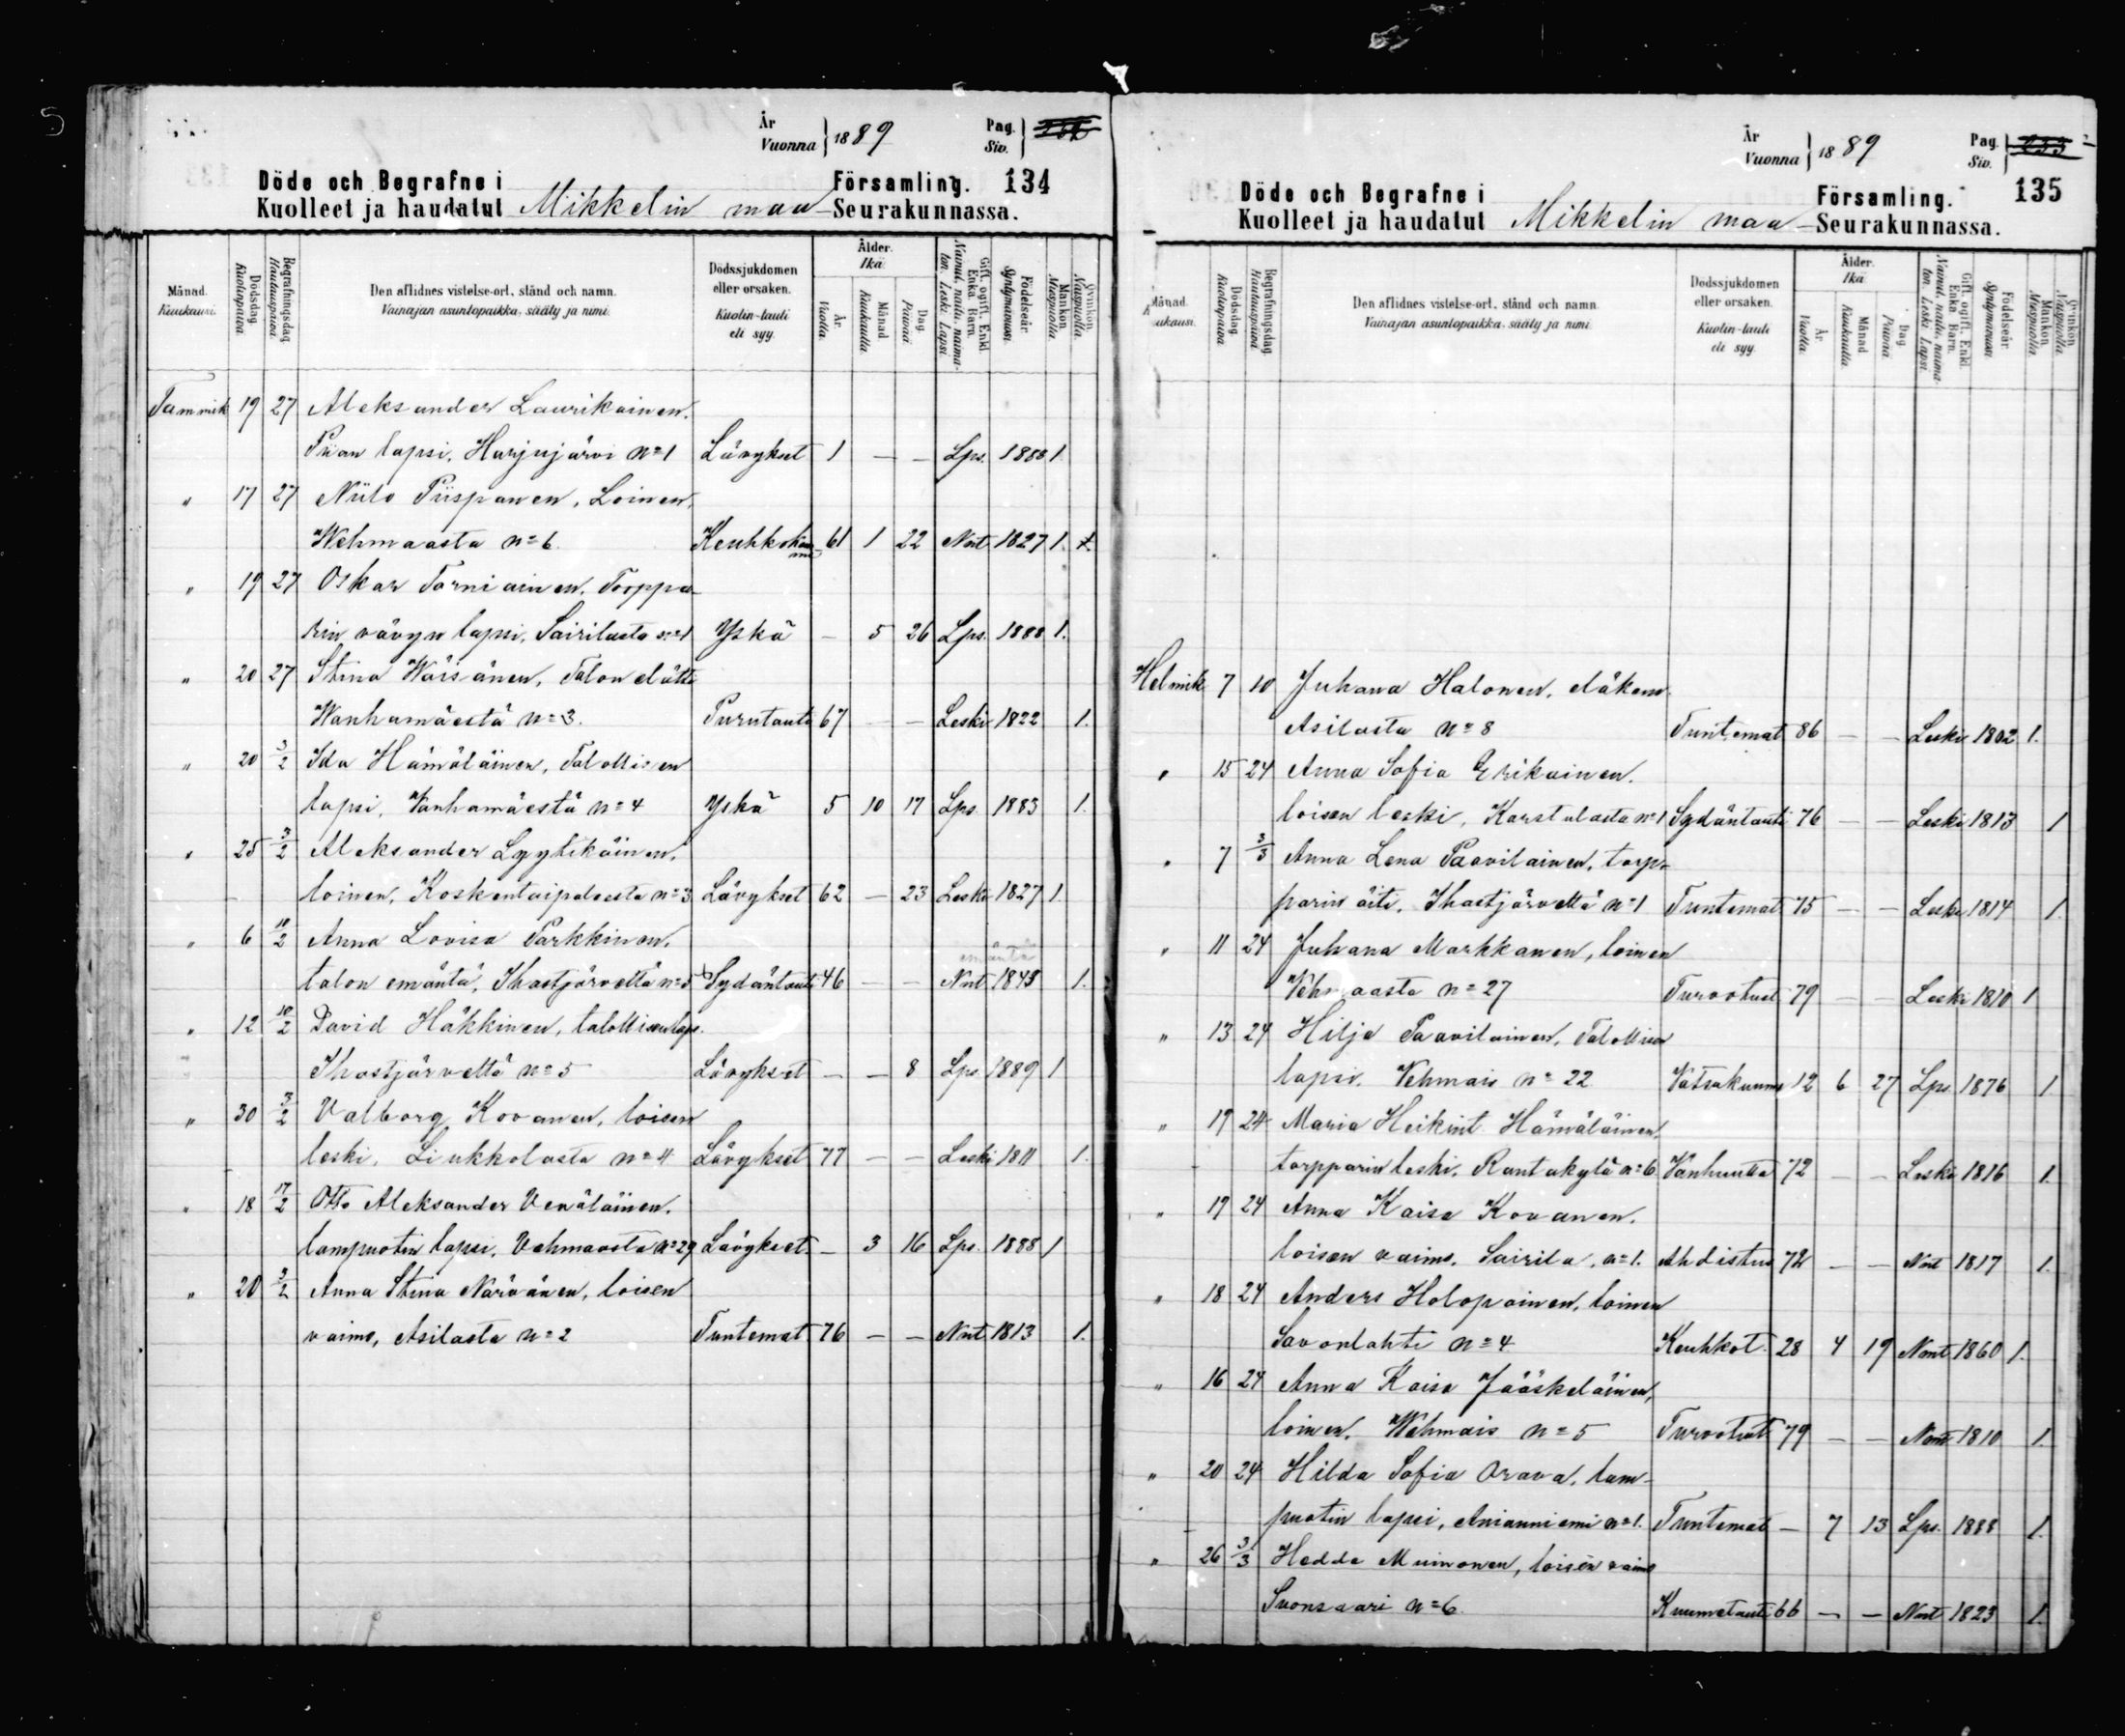 År
Vuonna } 1889
Pag.
Siv. }
Döde och Begrafne i Församling. 134
Kuolleet ja haudatut Mikkelin maa Seurakunnassa.
Månad. Kuukausi. Dödsdag. Kuolinpäivä. Begrafningsdag. Hautauspäivä. Den aflidnes vistelse-ort, stånd och namn. Vainajan asuntopaikka, sääty ja nimi. Dödssjukdomen eller orsaken. Kuolin-tauti eli syy. Ålder. Ikä. År. Vuotta. Månad. Kuukautta. Dag. Päivää. Gift, ogift. Enkl. Enka. Barn. Nainut, naitu, naimaton. Leski. Lapsi. Födelseår. Syntymävuosi. Mankön. Miespuolia. Qvinkön. Naispuolia.
Tammik 19 27 Aleksander Laurikainen.
Piian lapsi, Harjujärvi n=1 Lävykset 1 — — Lps. 1888 1.
" 17 27 Niilo Piispanen, Loinen,
Wehmaasta n=6. 61 1 22 Nnt 1827 1.
" 19 27 Oskar Torniainen, Torppa-
rin vävyn lapsi, Sairilasta n=1 Yskä — 5 26 Lps. 1888 1.
" 20 27 Stina Wäisänen, Talon elätti
Wanhamäestä n=3. Purutauti 67 — — Leski 1822 1.
" 20 3/2 Ida Hämäläinen, Talollisen
lapsi, Vanhamäestä n=4 Yskä 5 10 17 Lps. 1883 1.
" 25 3/2 Aleksander Lyytikäinen,
loinen, Koskentaipaleesta n=3 Lävykset 62 — 23 Leski 1827 1.
" 6 10/2 Anna Lovisa Parkkinen,
emäntä
talon emäntä, Ihastjärveltä n=5 Sydäntauti 46 — — Nnt 1843 1.
" 12 10/2 David Häkkinen, talollisen laps.
Ihastjärveltä n=5 Lävykset — — 8 Lps 1889 1
" 30 3/2 Valborg Kovanen, loisen
leski, Liukkolasta n=4 Lävykset 77 — — Leski 1811 1.
" 18 17/2 Otto Aleksander Venäläinen,
lampuotin lapsi, Vehmaasta n=29 Lävykset — 3 16 Lps. 1888 1
" 20 3/2 Anna Stina Närvänen, loisen
vaimo, Asilasta n=2 Tuntemat. 76 — — Nnt 1813 1.
År
Vuonna } 1889
Pag.
Siv. } 233
Döde och Begrafne i Församling. 135
Kuolleet ja haudatut Mikkelin maa Seurakunnassa.
Månad. Kuukausi. Dödsdag. Kuolinpäivä. Begrafningsdag. Hautauspäivä. Den aflidnes vistelse-ort, stånd och namn. Vainajan asuntopaikka, sääty ja nimi. Dödssjukdomen eller orsaken. Kuolin-tauti eli syy. Ålder. Ikä. År. Vuotta. Månad. Kuukautta. Dag. Päivää. Gift, ogift. Enkl. Enka. Barn. Nainut, naitu, naimaton. Leski. Lapsi. Födelseår. Syntymävuosi. Mankön. Miespuolia. Qvinkön. Naispuolia.
Helmik 7 10 Juhana Halonen,
Asilasta n=8 Tuntemat 86 — — Leski 1802 1.
" 15 24 Anna Sofia Erikäinen,
loisen leski, Karstulasta n=1 Sydäntauti 76 — — Leski 1813 1
" 7 3/3 Anna Lena Paavilainen, torp-
parin äiti, Ihastjärveltä n=1 Tuntemat 75 — — Leski 1814 1.
" 11 24 Juhana Markkanen, loinen
Vehmaasta n=27 Turvotust 79 — — Leski 1810 1
" 13 24 Hilja Paavilainen, Talollisen
lapsi, Vehmais n=22 Vatsakuume 12 6 27 Lps. 1876 1
" 17 24 Maria Heikint. Hämäläinen,
torpparin leski, Rantakylä n=6 Vanhuutta 72 — — Leski 1816 1.
" 17 24 Anna Kaisa Kovanen,
loisen vaimo, Sairila, n=1. Ahdistus 72 — — Nnt 1817 1.
" 18 24 Anders Holopainen, loinen
Savonlahti n=4 Keuhkot. 28 4 19 Nmt 1860 1.
" 16 24 Anna Kaisa Jääskeläinen,
loinen, Wehmais n=5 Turvotust 79 — — Nmt 1810 1.
" 20 24 Hilda Sofia Orava, lam-
puotin lapsi, Anianniemi n=1. Tuntemat — 7 13 Lps. 1888 1.
" 26 3/3 Hedda Muinonen, loisen vaimo
Suonsaari n=6. Kuumetauti 66 — — Nnt 1823 1.